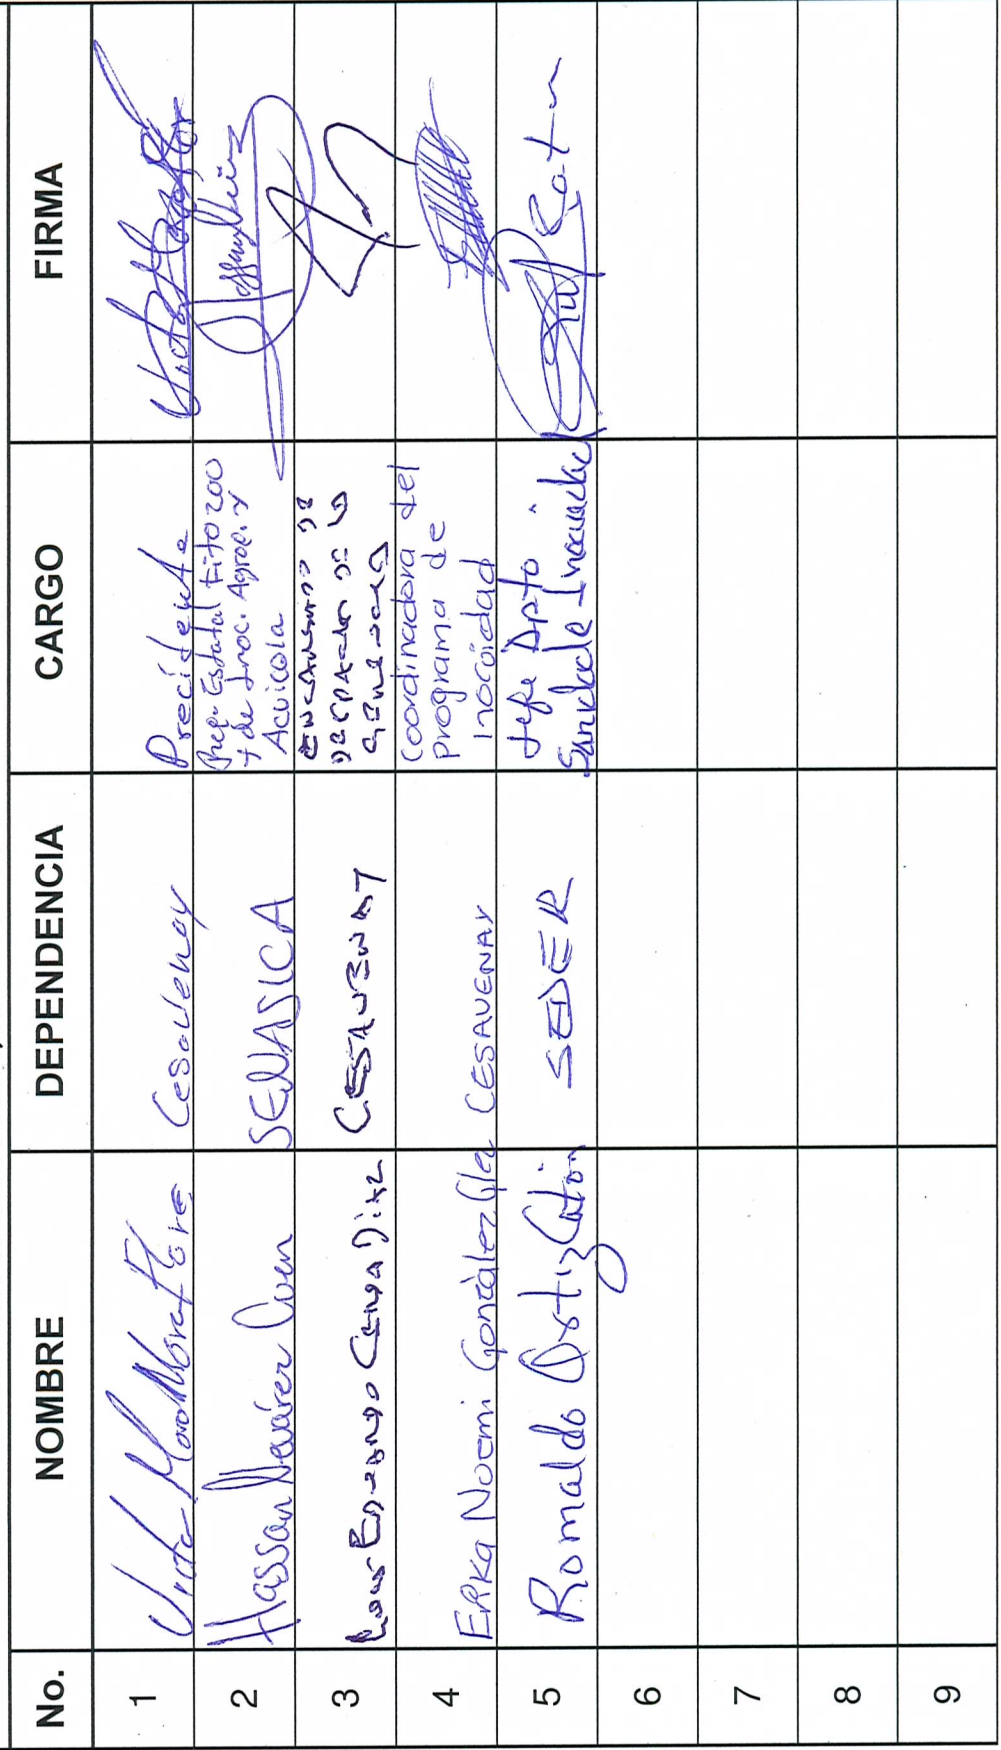 No. NOMBRE DEPENDENCIA CARGO FIRMA
1 Cesavenay Precidente
2 Hassan Nevárez SENASICA Rep. Estatal Fitozoo
y de Inoc. Agrop. y
Acuicola
3 CESAVENAY ENCARGADO DE
DESPACHO DE LA
GERENCIA
4 ERIKA Noemi González Glez CESAVENAY Coordinadora del
programa de
inocuidad
5 Romaldo Ortiz Catón SEDER Jefe Dpto
Sanidad e Inocuidad
6
7
8
9